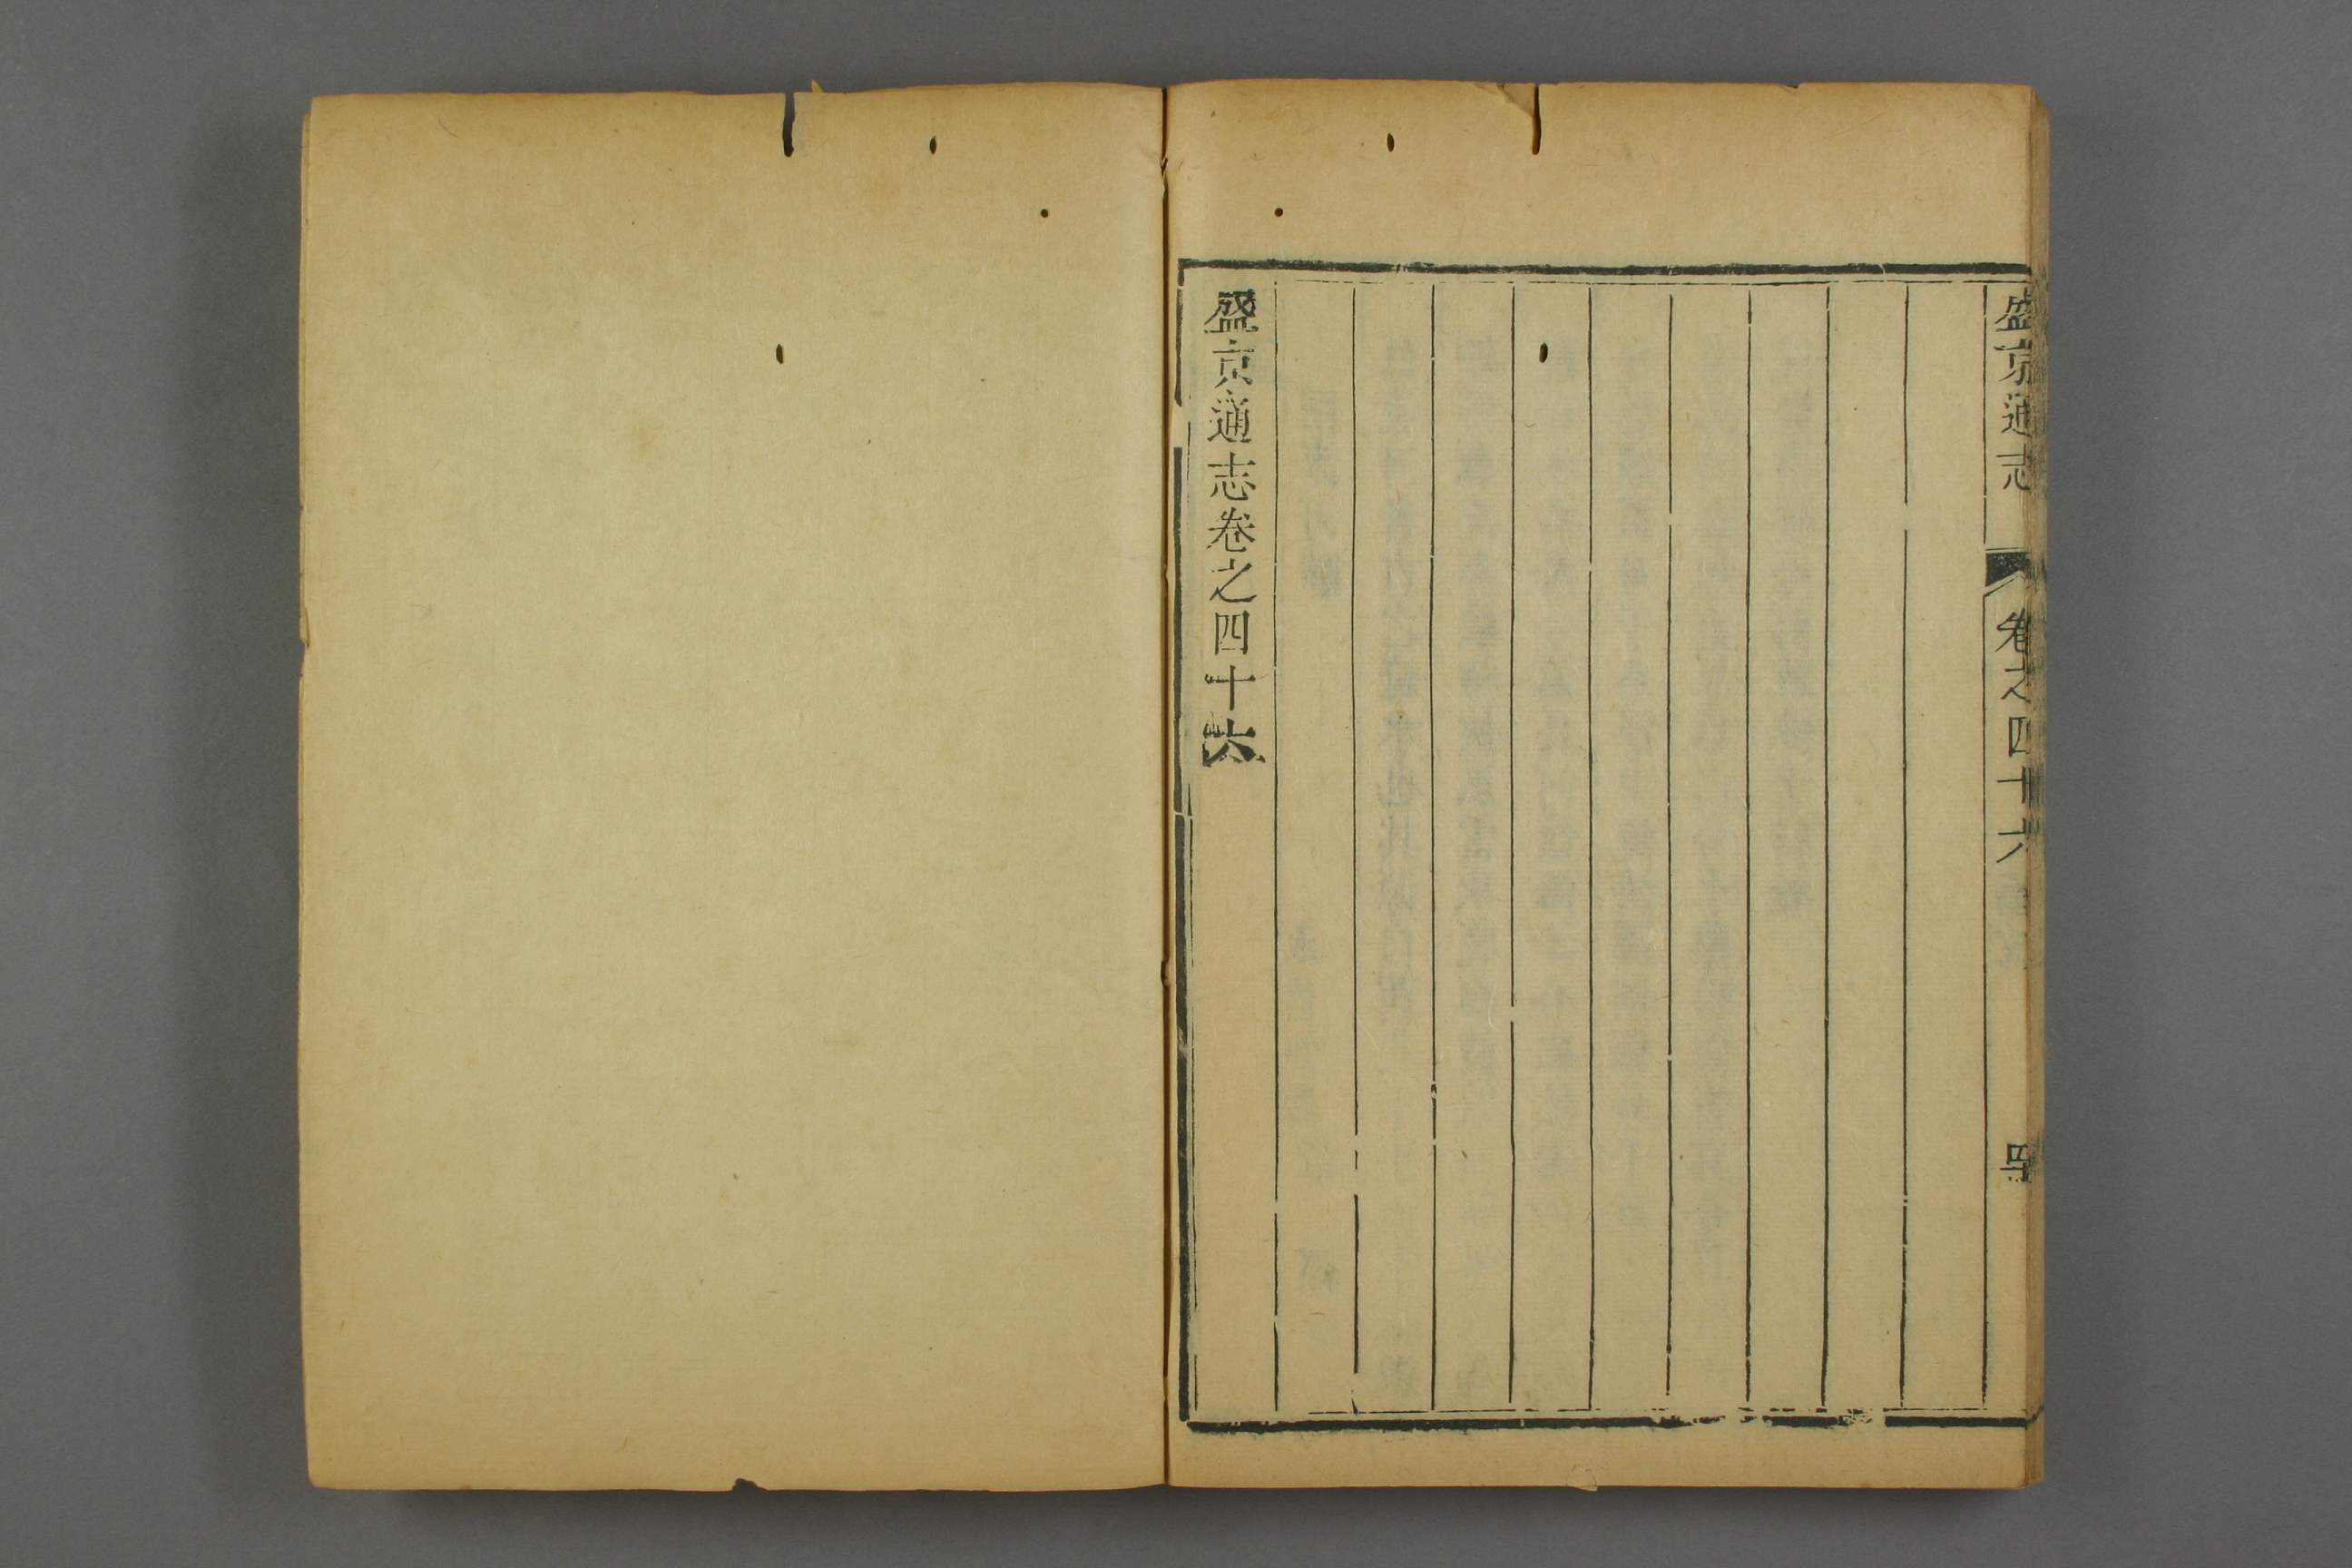 盛京通志
卷之四十六
盛京通志卷之四十六